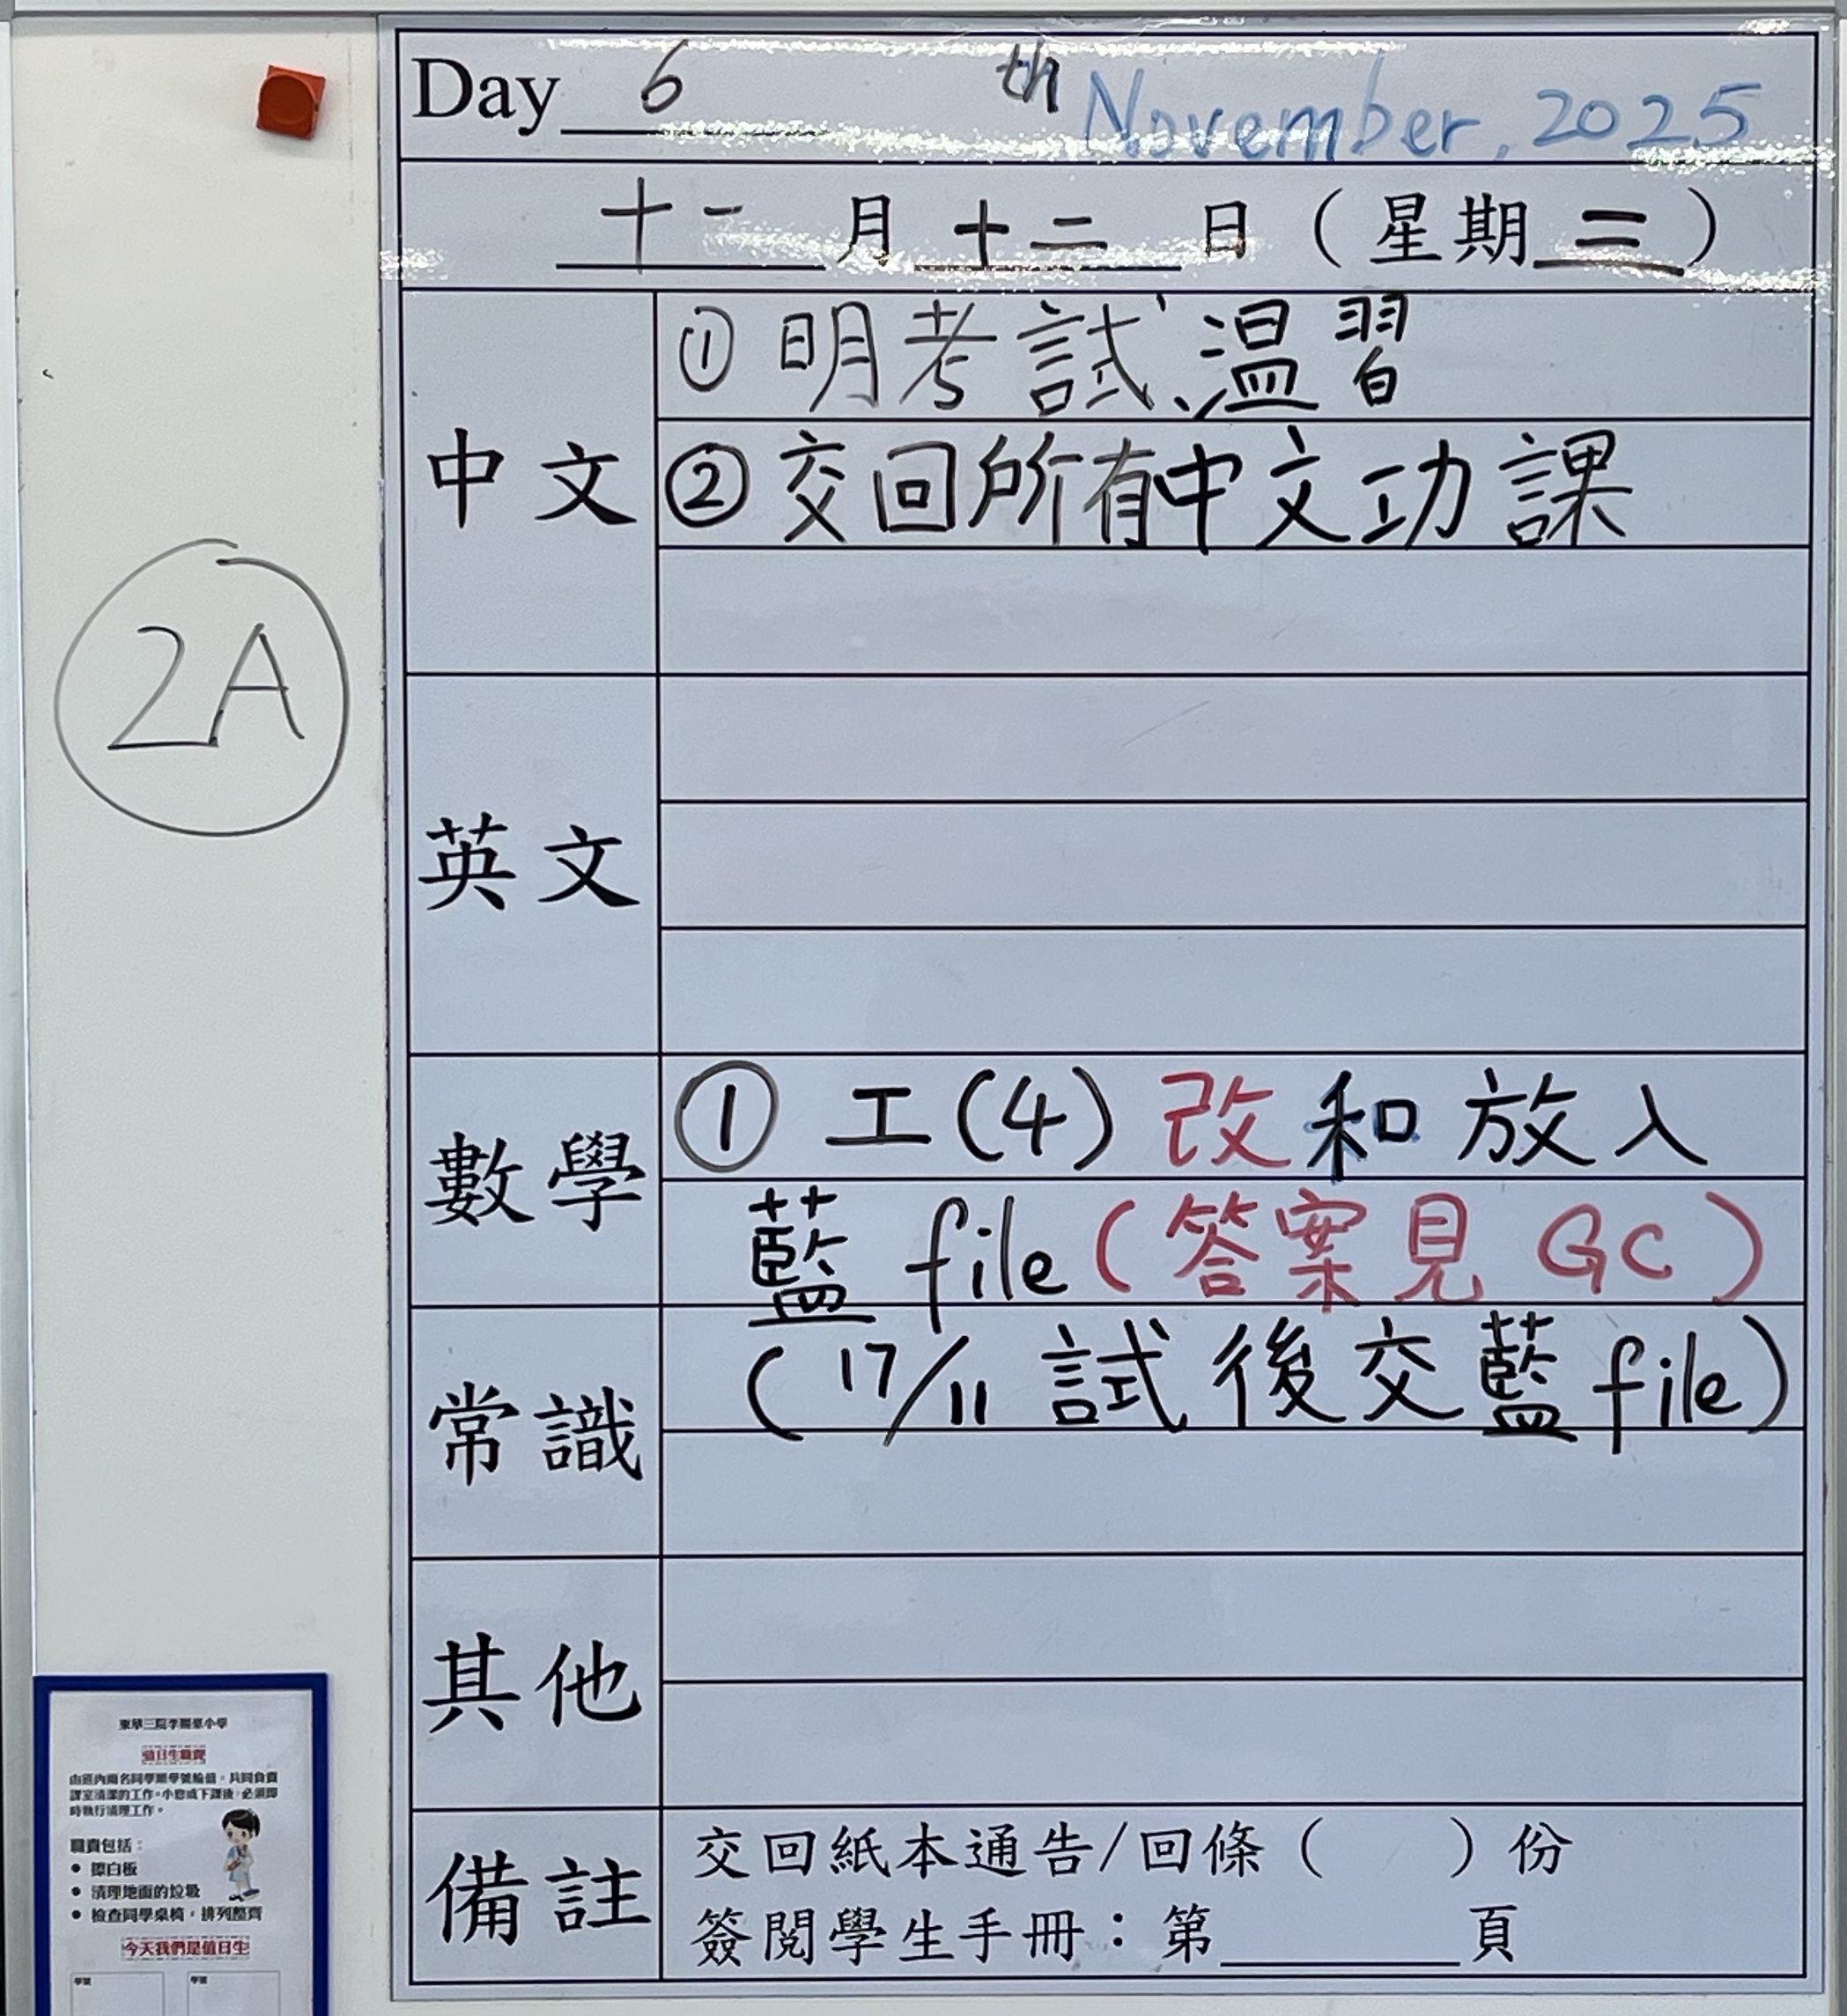 Day 6 th November, 2025
十一月十二日（星期三）
中文
① 明考試、温習
② 交回所有中文功課
英文
數學
① 工(4) 改和放入
藍 file (答案見 GC)
常識
(17/11 試後交藍 file)
其他
備註
交回紙本通告/回條（ ）份
簽閱學生手冊：第______頁
2A
值日生職責
由班內兩名同學順學號輪值，共同負責
課室清潔的工作。小息或下課後，必須即
時執行清理工作。
職責包括：
• 擦白板
• 清理地面的垃圾
• 檢查同學桌椅，排列整齊
今天我們是值日生
學號 學號